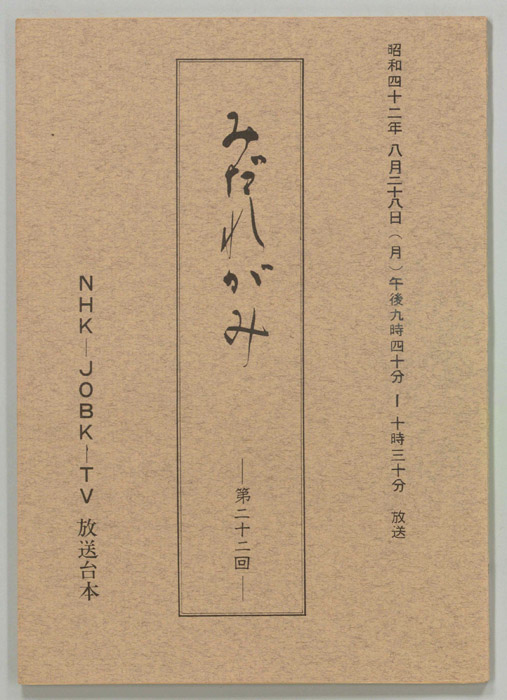 昭和四十二年 八月二十八日（月）午後九時四十分 ― 十時三十分 放送
みだれがみ
―第二十二回―
NHK―JOBK―TV 放送台本